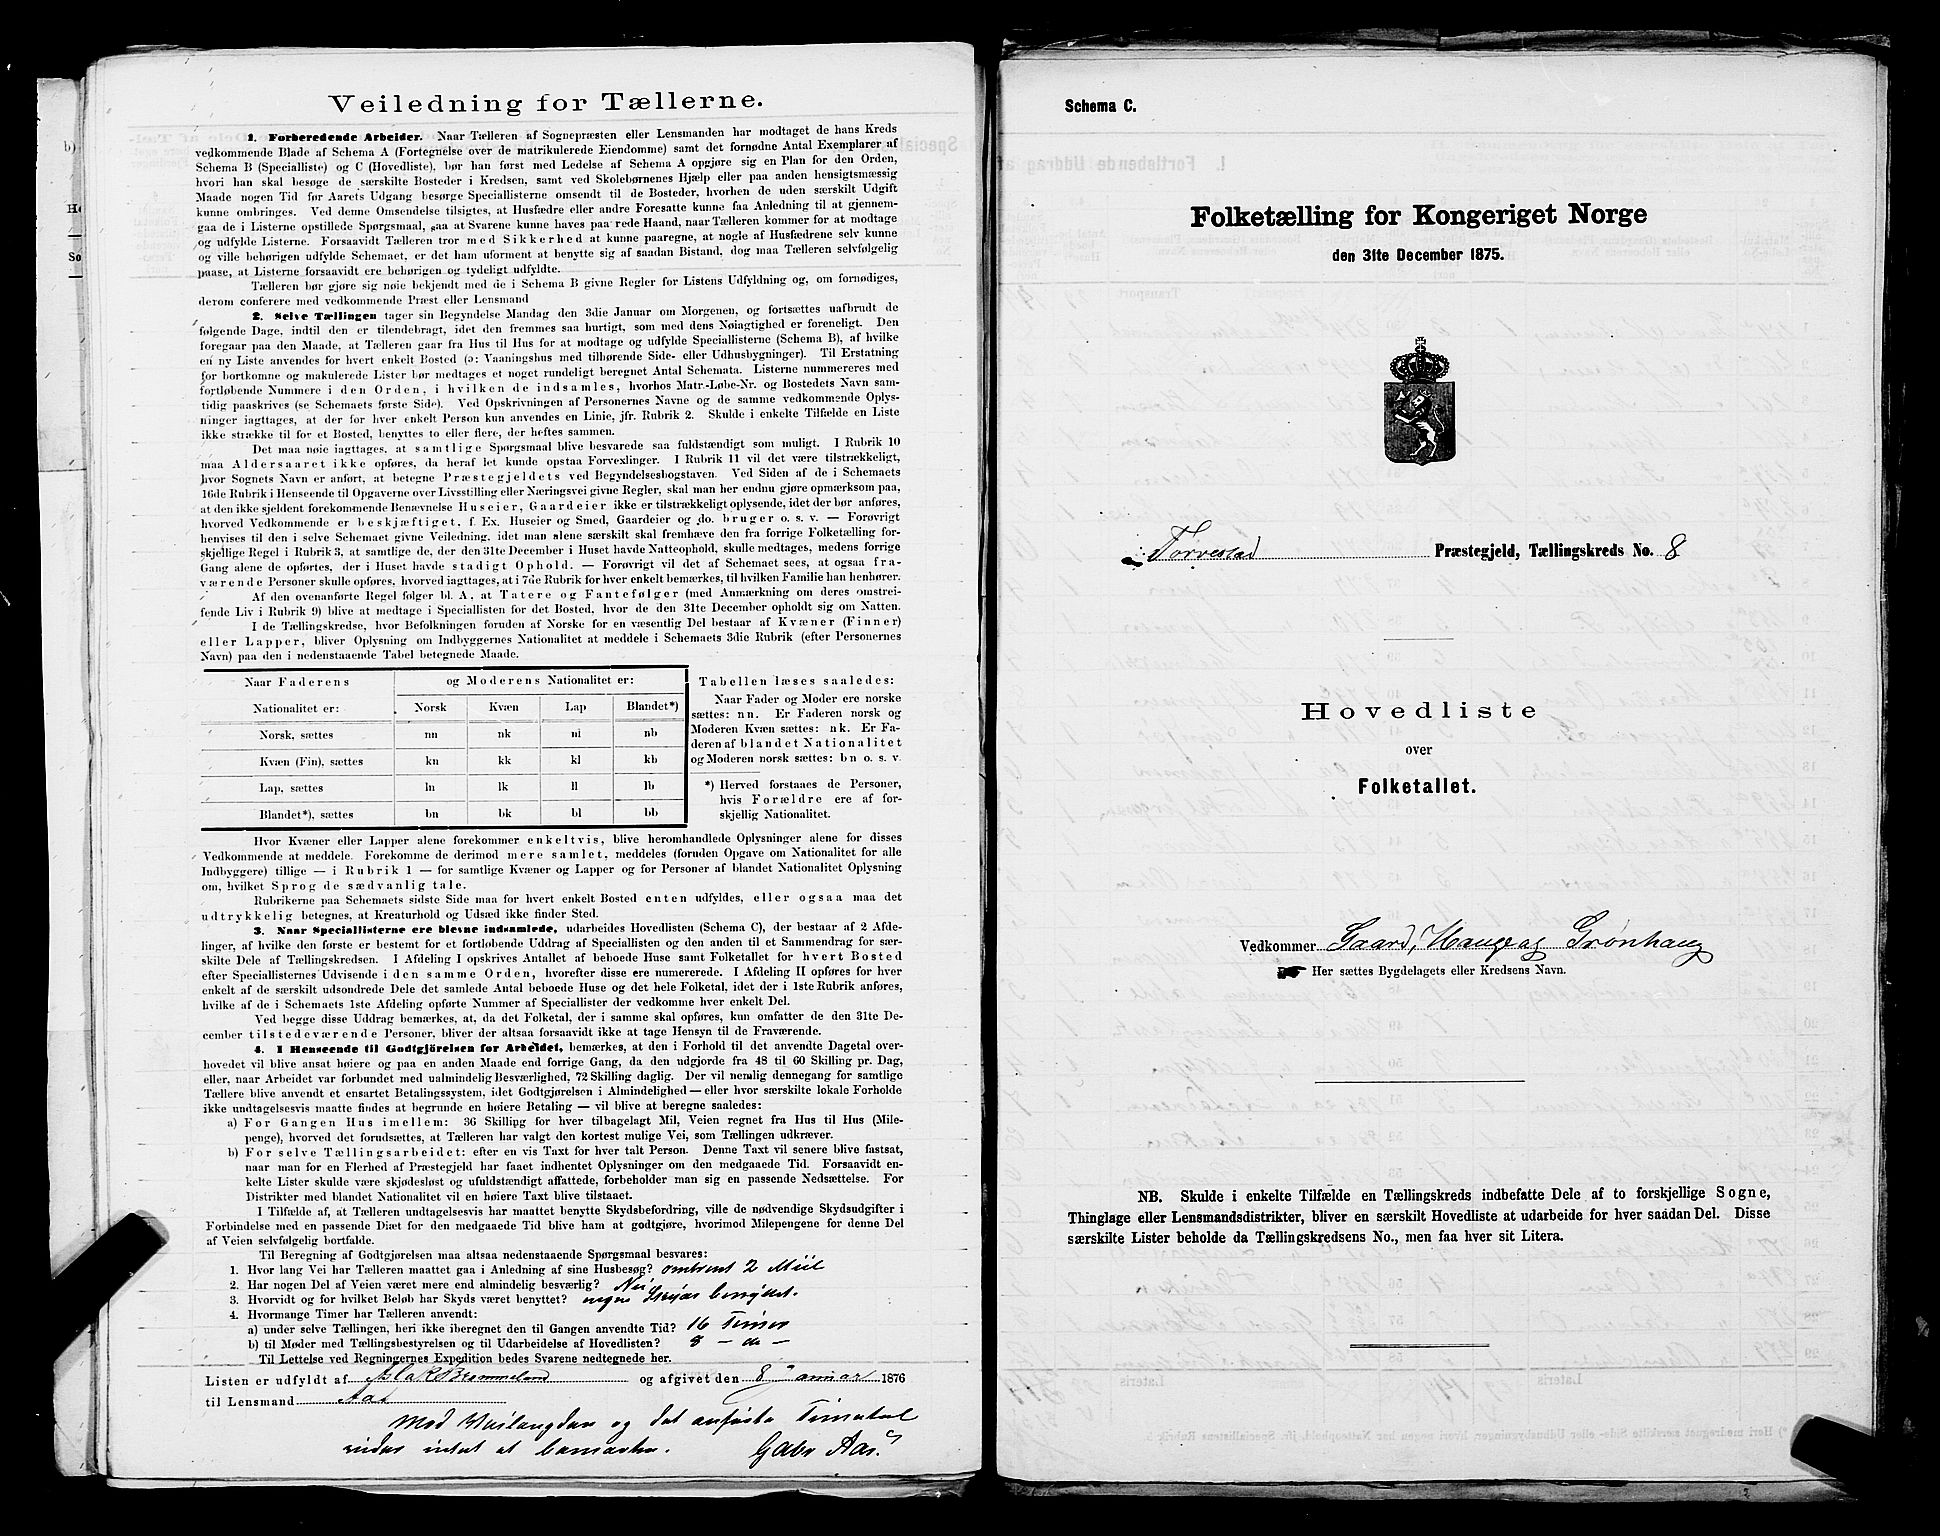 Veiledning for Tællerne.
1. Forberedende Arbeider. Naar Tælleren af Sognepræsten eller Lensmanden har modtaget de hans Kreds
vedkommende Blade af Schema A (Fortegnelse over de matrikulerede Eiendomme) samt det fornødne Antal Exemplarer af
Schema B (Specialliste) og C (Hovedliste), bør han først med Ledelse af Schema A opgjøre sig en Plan for den Orden,
hvori han skal besøge de særskilte Bosteder i Kredsen, samt ved Skolebørnenes Hjælp eller paa anden hensigtsmæssig
Maade nogen Tid før Aarets Udgang besørge Speciallisterne omsendt til de Bosteder, hvorhen de uden særskilt Udgift
kunne ombringes. Ved denne Omsendelse tilsigtes, at Husfædre eller andre Foresatte kunne faa Anledning til at gjennem-
gaa de i Listerne opstillede Spørgsmaal, saa at Svarene kunne haves paa rede Haand, naar Tælleren kommer for at modtage
og udfylde Listerne. Forsaavidt Tælleren tror med Sikkerhed at kunne paaregne, at nogle af Husfædrene selv kunne
og ville behørigen udfylde Schemaet, er det ham uforment at benytte sig af saadan Bistand, dog maa Tælleren selvfølgelig
paase, at Listerne forsaavidt ere behørigen og tydeligt udfyldte.
Tælleren bør gjøre sig nøie bekjendt med de i Schema B givne Regler for Listens Udfyldning og, om fornødiges,
derom conferere med vedkommende Præst eller Lensmand
2. Selve Tællingen tager sin Begyndelse Mandag den 3die Januar om Morgenen, og fortsættes uafbrudt de
følgende Dage, indtil den er tilendebragt, idet den fremmes saa hurtigt, som med dens Nøiagtighed er foreneligt. Den
foregaar paa den Maade, at Tælleren gaar fra Hus til Hus for at modtage og udfylde Speciallisterne (Schema B), af hvilke
en ny Liste anvendes for hvert enkelt Bosted (ɔ: Vaaningshus med tilhørende Side- eller Udhusbygninger). Til Erstatning
for bortkomne og makulerede Lister bør medtages et noget rundeligt beregnet Antal Schemata. Listerne nummereres med
fortløbende Nummere i den Orden, i hvilken de indsamles, hvorhos Matr.-Løbe-Nr. og Bostedets Navn sam-
tidig paaskrives (se Schemaets første Side). Ved Opskrivningen af Personernes Navne og de samme vedkommende Oplys-
ninger iagttages, at der for hver enkelt Person kun anvendes en Linie, jfr. Rubrik 2. Skulde i enkelte Tilfælde en Liste
ikke strække til for et Bosted, benyttes to eller flere, der heftes sammen.
Det maa nøie iagttages, at samtlige Spørgsmaal blive besvarede saa fuldstændigt som muligt. I Rubrik 10
maa Aldersaaret ikke opføres, da heraf let kunde opstaa Forvexlinger. I Rubrik 11 vil det være tilstrækkeligt,
hvor Sognets Navn er anført, at betegne Præstegjeldets ved Begyndelsesbogstaven. Ved Siden af de i Schemaets
16de Rubrik i Henseende til Opgaverne over Livsstilling eller Næringsvei givne Regler, skal man her endnu gjøre opmærksom paa,
at den ikke sjeldent forekommende Benævnelse Huseier, Gaardeier ikke er tilstrækkeligt oplysende, idet der bør anføres,
hvorved Vedkommende er beskjæftiget, f. Ex. Huseier og Smed, Gaardeier og do. bruger o. s. v. — Forøvrigt
henvises til den i selve Schemaet givne Veiledning, idet man alene særskilt skal fremhæve den fra forrige Folketælling for-
skjellige Regel i Rubrik 3, at samtlige de, der den 31te December i Huset havde Natteophold, skulle medtages, medens forrige
Gang alene de opførtes, der i Huset havde stadigt Ophold. — Forøvrigt vil det af Schemaet sees, at ogsaa fra-
værende Personer skulle opføres, hvorved iagttages, at i 7de Rubrik for hver enkelt bemærkes, til hvilken Familie han henhører.
Af den ovenanførte Regel følger bl. A., at Tatere og Fantefølger (med Anmærkning om deres omstrei-
fende Liv i Rubrik 9) blive at medtage i Speciallisten for det Bosted, hvor de den 31te December opholdt sig om Natten.
I de Tællingskredse, hvor Befolkningen foruden af Norske for en væsentlig Del bestaar af Kvæner (Finner)
eller Lapper, bliver Oplysning om Indbyggernes Nationalitet at meddele i Schemaets 3die Rubrik (efter Personernes
Navn) paa den i nedenstaaende Tabel betegnede Maade.
Naar Faderens og Moderens Nationalitet er:
Nationalitet er: Norsk Kvæn Lap Blandet*)
Norsk, sættes nn nk nl nb
Kvæn (Fin), sættes kn kk kl kb
Lap, sættes ln lk ll lb
Blandet*), sættes bn bk bl bb
Tabellen læses saaledes:
Naar Fader og Moder ere norske
sættes: nn. Er Faderen norsk og
Moderen Kvæn sættes: nk. Er Fa-
deren af blandet Nationalitet
og Moderen norsk sættes: bn o. s. v.
*) Herved forstaaes de Personer,
hvis Forældre ere af for-
skjellig Nationalitet.
Hvor Kvæner eller Lapper alene forekommer enkeltvis, blive heromhandlede Oplysninger alene for disses
Vedkommende at meddele. Forekomme de derimod mere samlet, meddeles (foruden Opgave om Nationalitet for alle
Indbyggere) tillige — i Rubrik 1 — for samtlige Kvæner og Lapper og for Personer af blandet Nationalitet Oplysning
om, hvilket Sprog de sædvanlig tale.
Rubrikerne paa Schemaets sidste Side maa for hvert enkelt Bosted enten udfyldes, eller ogsaa maa det
udtrykkelig betegnes, at Kreaturhold og Udsæd ikke finder Sted.
3. Naar Speciallisterne ere blevne indsamlede, udarbeides Hovedlisten (Schema C), der bestaar af 2 Afde-
linger, af hvilke den første er bestemt for et fortløbende Uddrag af Speciallisten og den anden til et Sammendrag for sær-
skilte Dele af Tællingskredsen. I Afdeling I opskrives Antallet af beboede Huse samt Folketallet for hvert Bosted
efter Speciallisternes Udvisende i den samme Orden, hvorefter disse ere numererede. I Afdeling II opføres for hver
enkelt af de særskilt udsondrede Dele det samlede Antal beboede Huse og det hele Folketal, idet der i 1ste Rubrik anføres,
hvilke af de i Schemaets 1ste Afdeling opførte Nummer af Speciallister der vedkomme hver enkelt Del.
Ved begge disse Uddrag bemærkes, at, da det Folketal, der i samme skal opføres, kun omfatter de den 31te De-
cember tilstedeværende Personer, bliver der altsaa forsaavidt ikke at tage Hensyn til de Fraværende.
4. I Henseende til Godtgjörelsen for Arbeidet, bemærkes, at den i Forhold til det anvendte Dagetal over-
hovedet vil blive ansat høiere og paa en anden Maade end forrige Gang, da den udgjorde fra 48 til 60 Skilling pr. Dag,
eller, naar Arbeidet var forbundet med ualmindelig Besværlighed, 72 Skilling daglig. Der vil nemlig dennegang for samtlige
Tællere blive anvendt et ensartet Betalingssystem, idet Godtgjørelsen i Almindelighed — eller hvor særskilte lokale Forholde
ikke undtagelsesvis maatte findes at begrunde en høiere Betaling — vil blive at beregne saaledes:
a) For Gangen Hus imellem: 36 Skilling for hver tilbagelagt Mil, Veien regnet fra Hus til Hus (Mile-
penge), hvorved det forudsættes, at Tælleren har valgt den kortest mulige Vei, som Tællingen udkræver.
b) For selve Tællingsarbeidet: efter en vis Taxt for hver talt Person. Denne Taxt vil senere blive fastsat,
naar man for en Flerhed af Præstegjeld har faaet indhentet Oplysninger om den medgaaede Tid. Forsaavidt en-
kelte Lister skulde være skjødesløst og ufuldstændigt affattede, forbeholder man sig en passende Nedsættelse. For
Distrikter med blandet Nationalitet vil en høiere Taxt blive tilstaaet.
I Tilfælde af, at Tælleren undtagelsesvis har maattet benytte Skydsbefordring, ville de nødvendige Skydsudgifter i
Forbindelse med en passende Diæt for den medgaaede Tid blive ham at godtgjøre, hvorimod Milepengene for denne Del
af Veien selvfølgelig bortfalde.
Til Beregning af Godtgjørelsen maa altsaa nedenstaaende Spørgsmaal besvares:
1. Hvor lang Vei har Tælleren maattet gaa i Anledning af sine Husbesøg? omtrent 2 Miil
2. Har nogen Del af Veien været mere end almindelig besværlig? Nei
3. Hvorvidt og for hvilket Beløb har Skyds været benyttet? ingen Skyds benyttet.
4. Hvormange Timer har Tælleren anvendt:
a) under selve Tællingen, heri ikke iberegnet den til Gangen anvendte Tid? 16 Timer
b) til Møder med Tællingsbestyrelsen og til Udarbeidelse af Hovedlisten? 8 — do —
Til Lettelse ved Regningernes Expedition bedes Svarene nedtegnede her.
Listen er udfyldt af Aslak Bremmeland og afgivet den 8 Januar 1876
til Lensmand Aas
Mod Veilængden og det anførte Timetal
vides intet at bemærke. Gabr Aas.
Schema C.
Folketælling for Kongeriget Norge
den 31te December 1875.
Torvestad Præstegjeld, Tællingskreds No. 8
Hovedliste
over
Folketallet.
Vedkommer Gaard, Hauge og Grønhaug
Her sættes Bygdelagets eller Kredsens Navn.
NB. Skulde i enkelte Tilfælde en Tællingskreds indbefatte Dele af to forskjellige Sogne,
Thinglage eller Lensmandsdistrikter, bliver en særskilt Hovedliste at udarbeide for hver saadan Del. Disse
særskilte Lister beholde da Tællingskredsens No., men faa hver sit Litera.